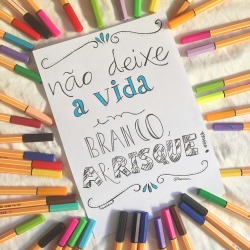 não deixe
a vida
em
BRANCO,
ARRISQUE